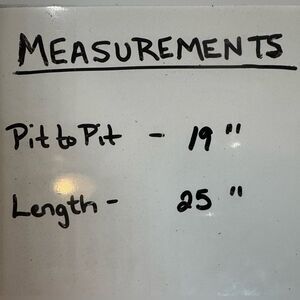 MEASUREMENTS
Pit to Pit - 19"
Length - 25"